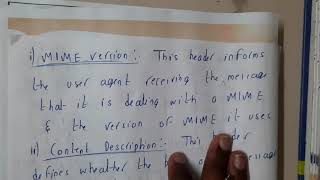 i) MIME version:- This header informs
the user agent receiving the message
that it is dealing with a MIME
& the version of MIME it uses
ii) Content Description:- This
defines wheather the